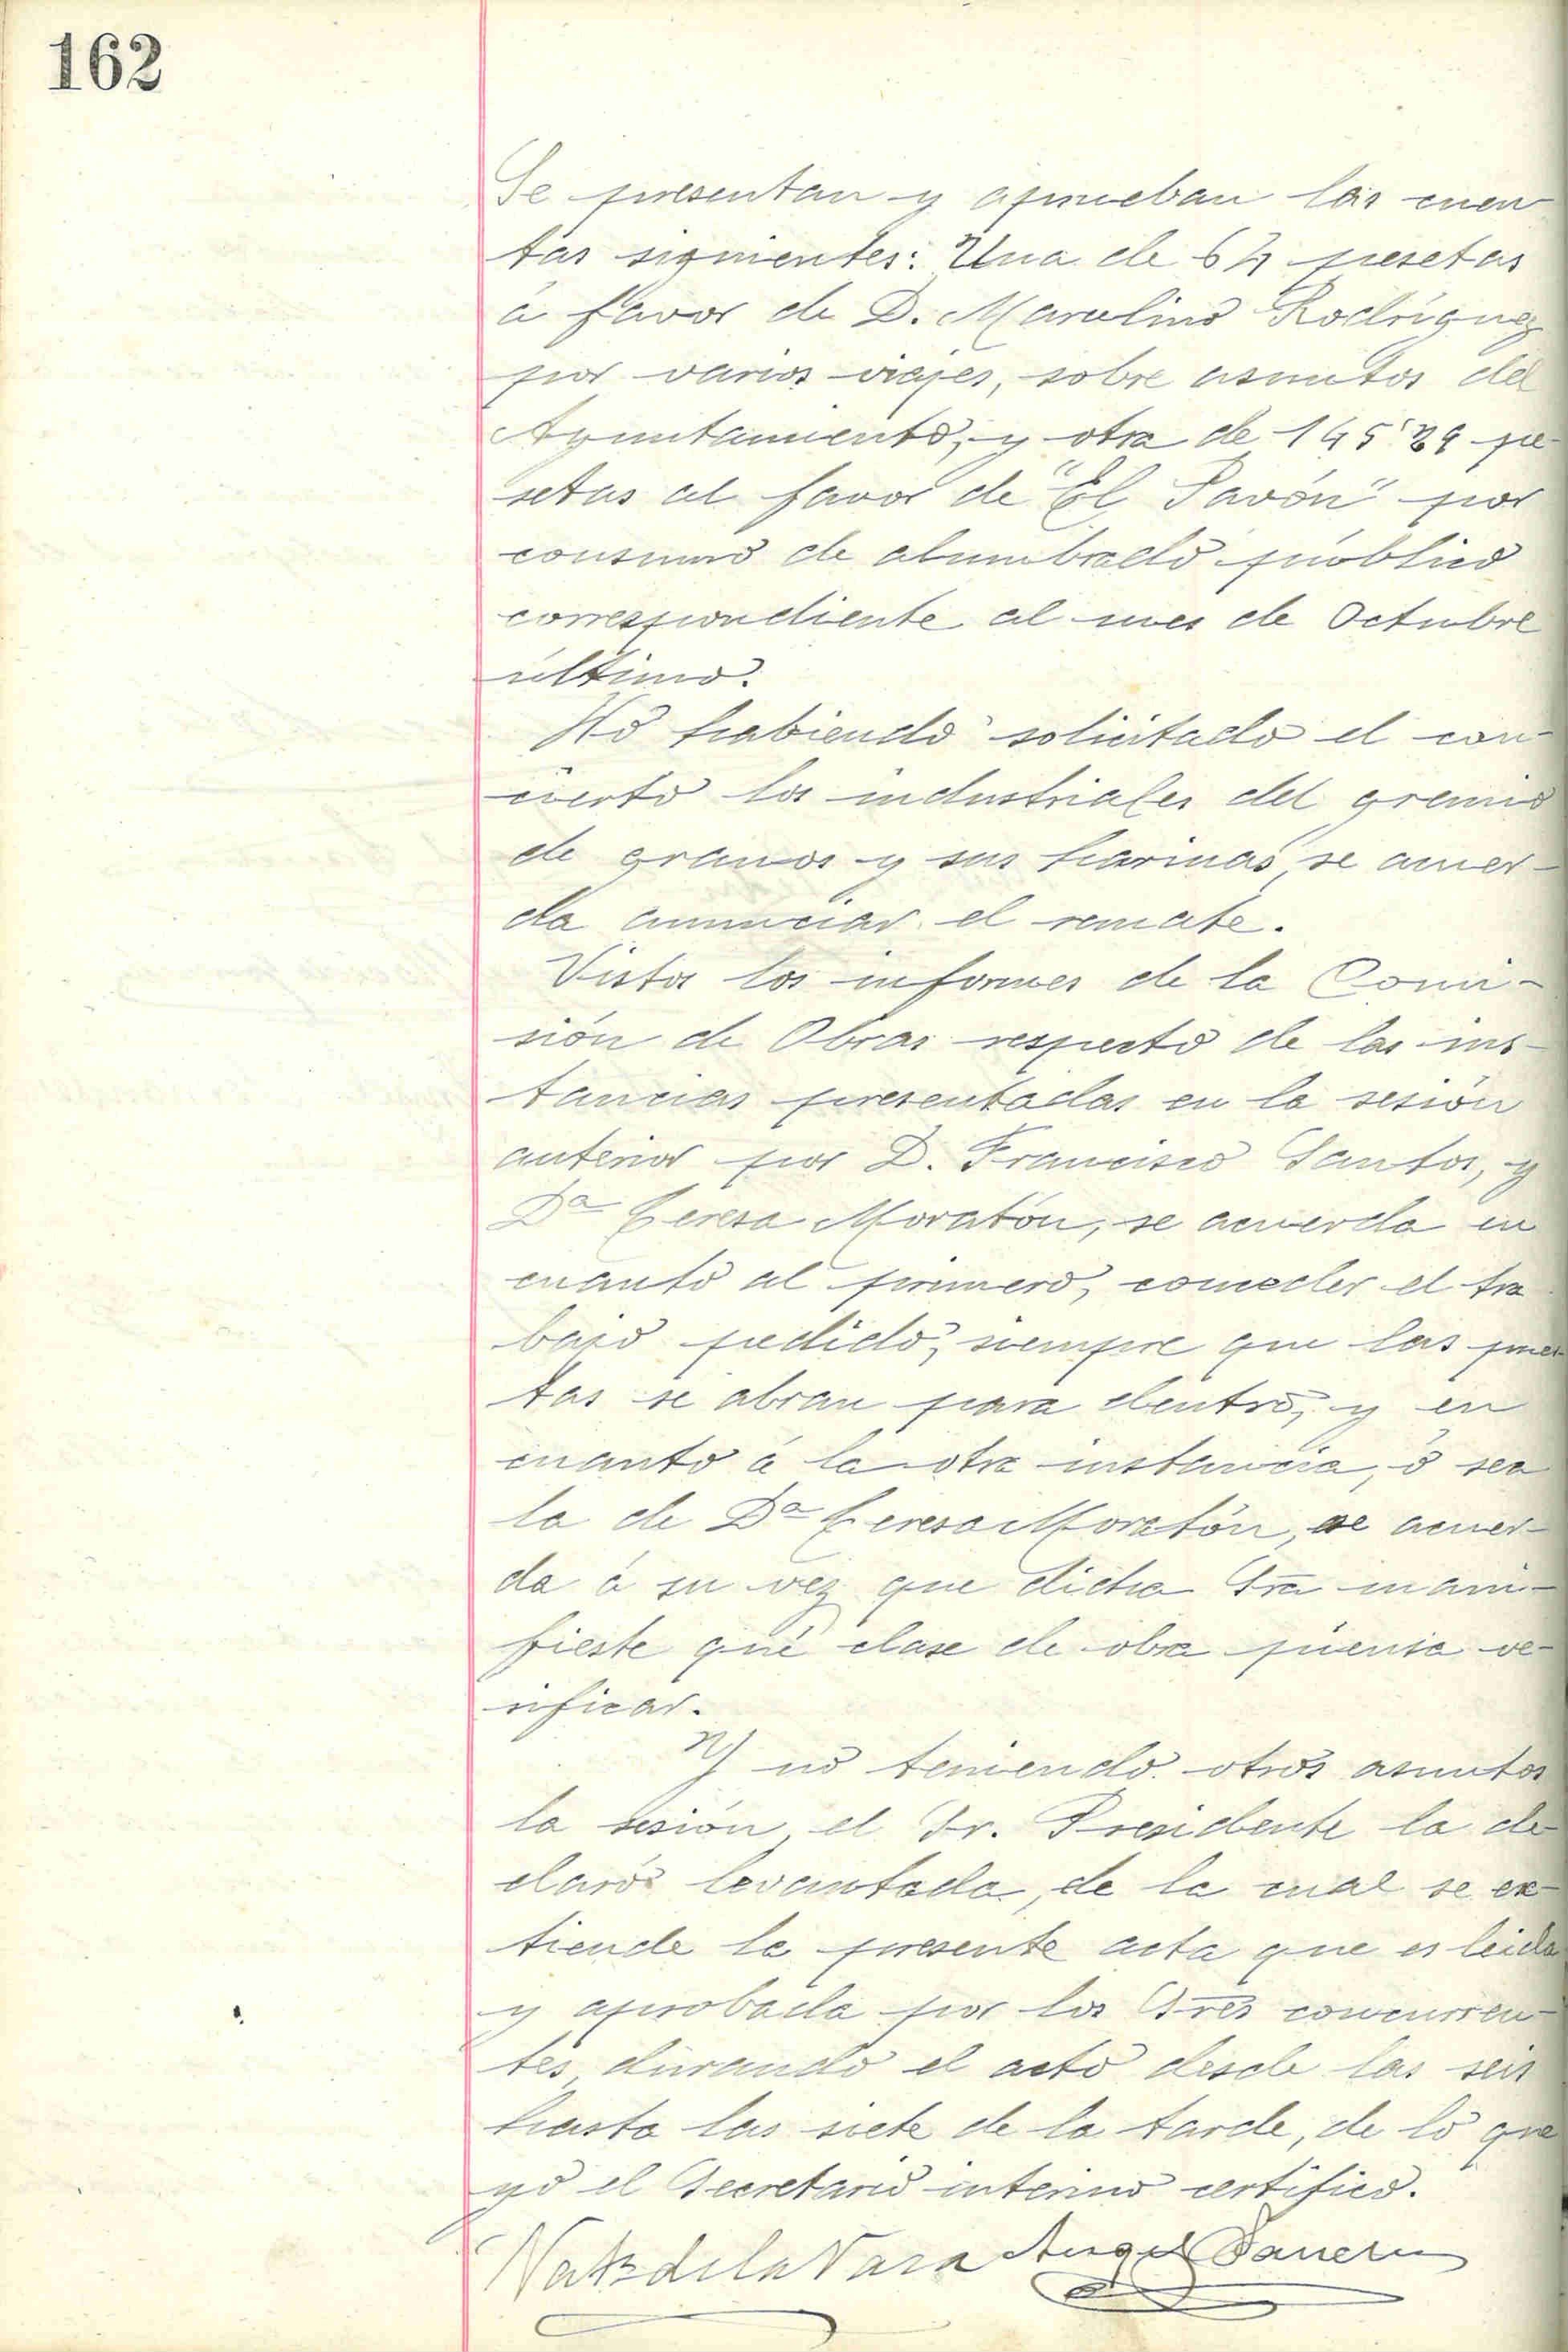 162
Se presentan y aprueban las cuen
tas siguientes: Una de 64 pesetas
á favor de D. Marcelino Rodríguez
por varios viajes, sobre asuntos del
Ayuntamiento, y otra de 145'29 pe-
setas al favor de "El Pavón" por
consumo de alumbrado público
correspondiente al mes de Octubre
último.
No habiendo solicitado el con-
cierto los industriales del gremio
de granos y sus harinas, se acuer-
da anunciar el remate.
Vistos los informes de la Comi-
sión de Obras respecto de las ins-
tancias presentadas en la sesión
anterior por D. Francisco Santos, y
Dª Teresa Moratón, se acuerda en
cuanto al primero, conceder el tra
bajo pedido, siempre que las puer
tas se abran para dentro, y en
cuanto á la otra instancia, ó sea
la de Dª Teresa Moratón, se acuer-
da á su vez que dicha Sra mani-
fieste qué clase de obra piensa ve-
rificar.
Y no teniendo otros asuntos
la sesión, el Sr. Presidente la de-
claró levantada, de la cual se ex-
tiende la presente acta que es leida
y aprobada por los Sres concurren-
tes, durando el acto desde las seis
hasta las siete de la tarde, de lo que
yo el Secretario interino certifico.
de la Vara Angel